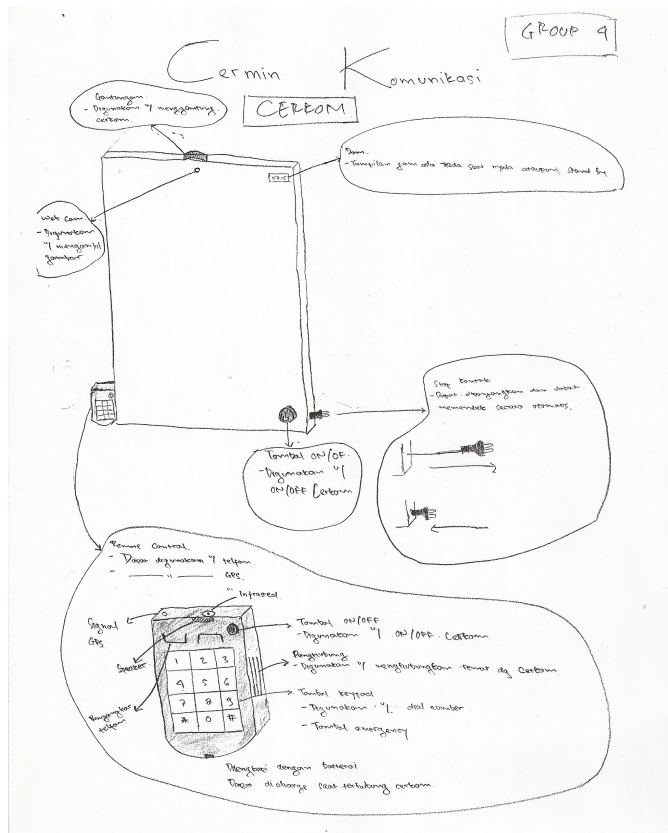 GROUP 9
Cermin Komunikasi
CERKOM
Gantungan.
- Digunakan u/ menggantung
cerkom.
Jam.
- Tampilan jam ada pada saat nyala ataupun stand by
07:15
Web Cam.
- Digunakan
u/ mengambil
gambar
Stop kontak
- Dapat dipanjangkan dan dapat
memendek secara otomatis.
Tombol ON/OF.
- Digunakan u/
ON/OFF Cerkom
Remote Control.
- Dapat digunakan u/ telfon
- " GPS.
" Infrared
Signal
GPS
Speaker
Pengangkat
telfon
Tombol ON/OFF
- Digunakan u/ ON/OFF Cerkom
Penghubung
- Digunakan u/ menghubungkan remot dg Cerkom
Tombol keypad
- Digunakan u/ dial number
- Tombol emergency
1 2 3
4 5 6
7 8 9
* 0 #
Dilengkapi dengan batterai
Dapat di charge saat terhubung cerkom.